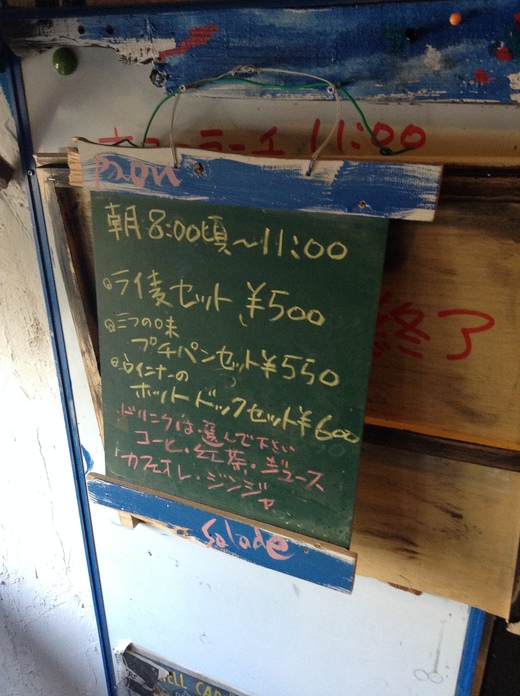 ランチ 11:00
Bon
朝8:00頃~11:00
ライ麦セット ¥500
三つの味
プチパンセット¥550
ウインナーの
ホットドックセット¥600
ドリンクは選んで下さい
コーヒ・紅茶・ジュース
カフェオレ・ジンジャ
Salade
終了